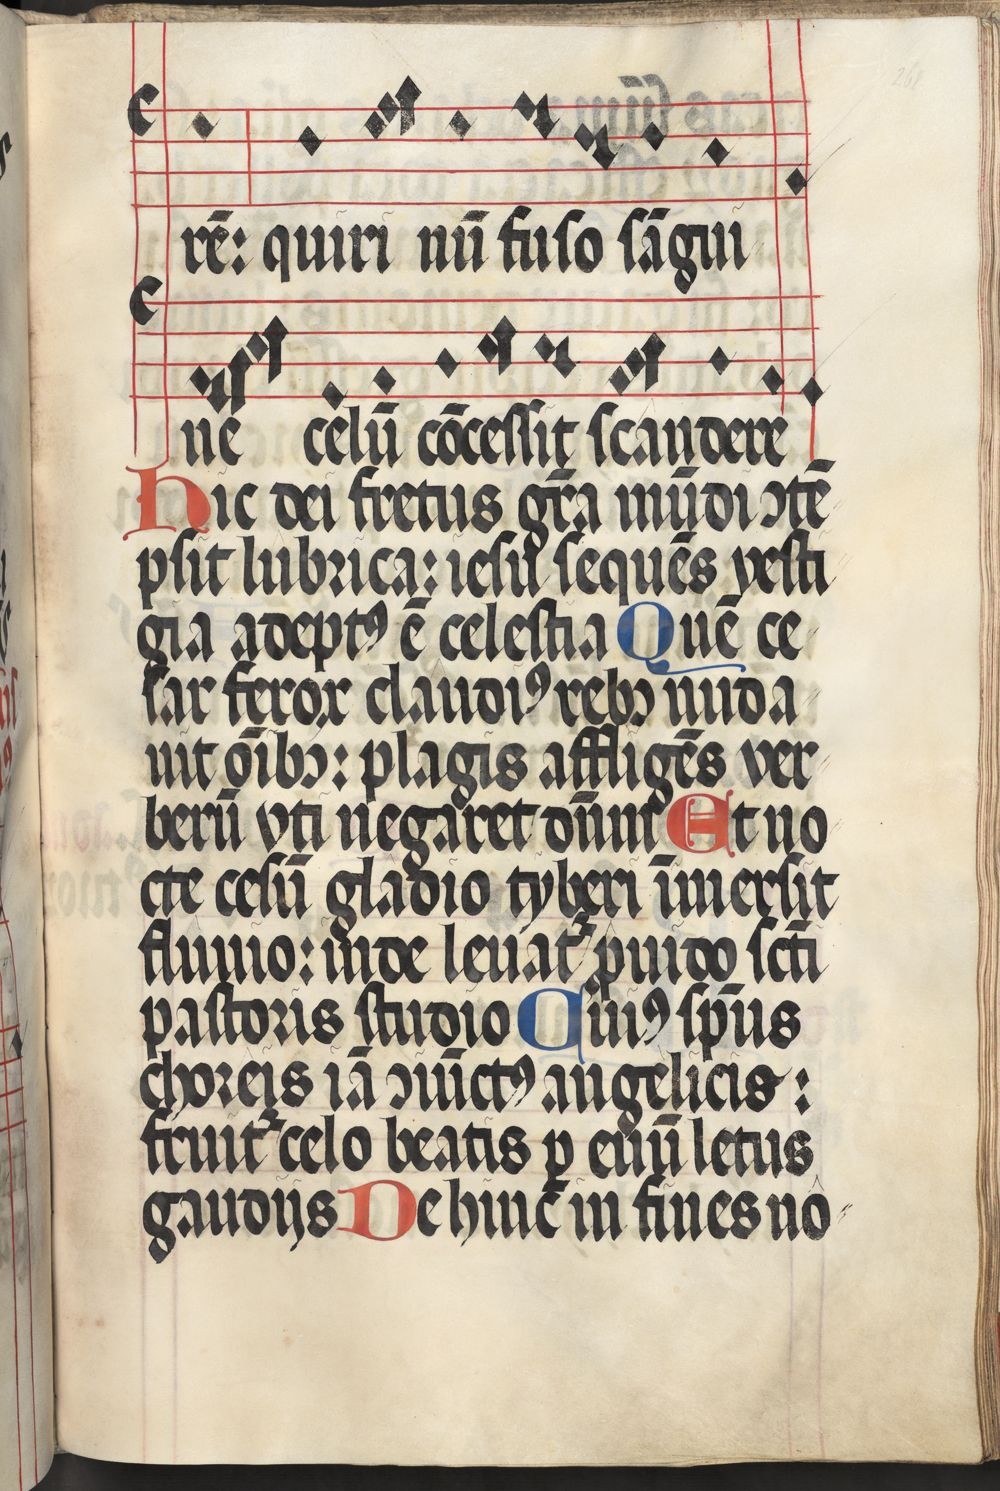 268
rē: quiri nū fuso sāgui
ne celū cōcessit scandere
Hic dei fretus gr̄a mūdi ↄtē
psit lubrica: iesu sequēs vesti
gia adeptꝰ ē celestia Quē ce
sar ferox claudiꝰ rebꝫ nuda
uit oībꝫ: plagis affligēs ver
berū vti negaret dūm Et no
cte cesū gladio tyberi īmersit
fluuio: inde leuatꝛ puido scti̅
pastoris studio Cuiꝰ spūs
choreis iā ↄiūctꝰ angelicis:
fruitꝛ celo beatis p euū letus
gaudijs De hinc̄ in fines nō